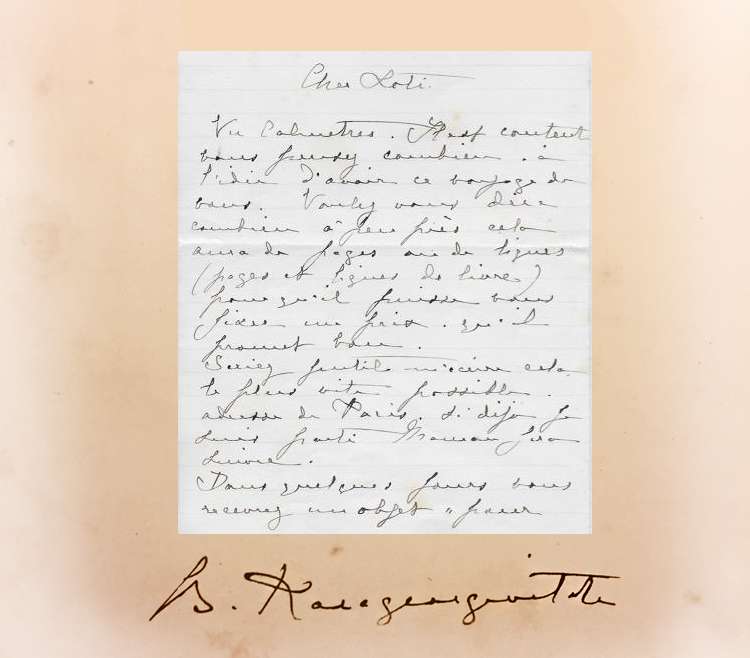 Cher Loti.
Vu Calmettes. Il est content
vous pensez combien. à
l'idée d'avoir ce voyage de
vous. Voulez vous dire
combien à peu près cela
aura de pages ou de lignes
(pages et lignes de livre)
pour qu'il puisse vous
fixer un prix. qu'il
promet bon.
Seriez gentil m'écrire cela
le plus vite possible.
adresse de Paris. Si déjà je
suis parti Maman fera
suivre.
Dans quelques jours vous
recevrez un objet "pour
B. Karageorgevitch